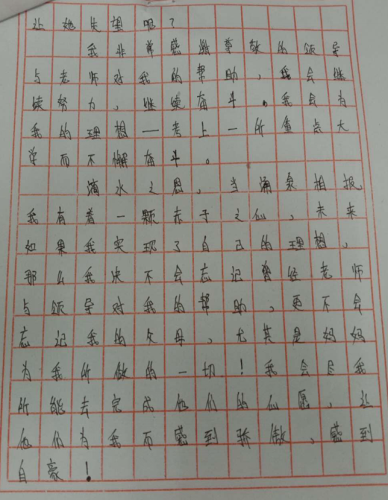 让她失望呢?
我非常感谢尊敬的领导
与老师对我的帮助,我会继
续努力,继续奋斗。我会为
我的理想一考上一所重点大
学而不懈奋斗。
滴水之恩,当涌泉相报,
我有着一颗赤子之心,未来
如果我实现了自己的理想,
那么我决不会忘记曾经老师
与领导对我的帮助,更不会
忘记我的父母,尤其是妈妈
为我所做的一切!我会尽我
所能去完成他们的心愿,让
他们为我而感到骄傲,感到
自豪!